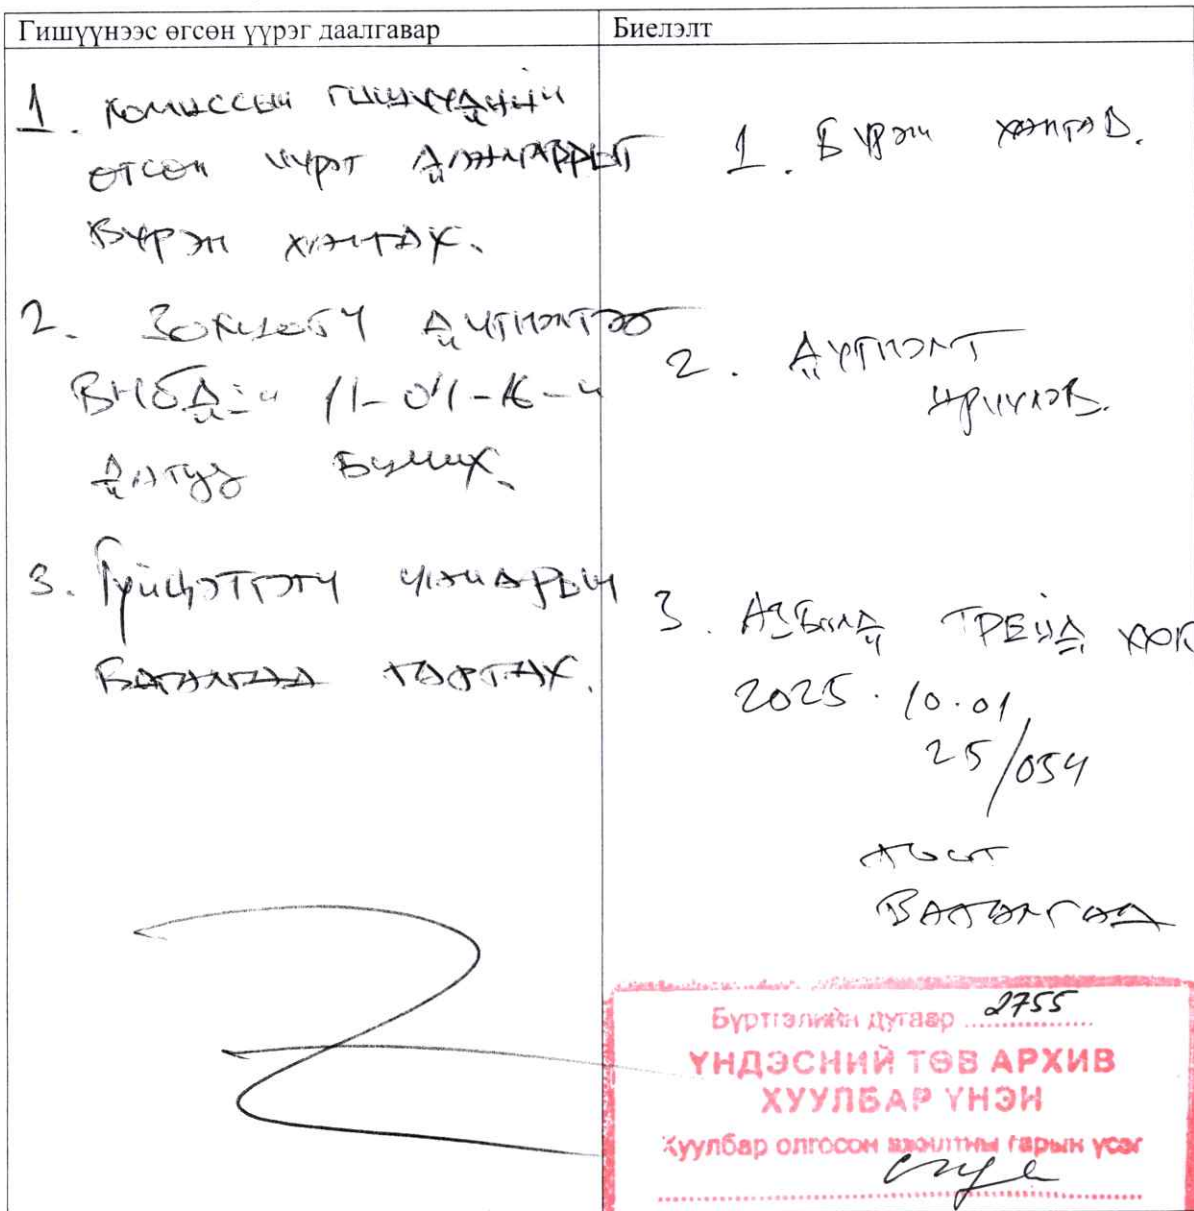 Гишүүнээс өгсөн үүрэг даалгавар
Биелэлт
1. Комиссын гишүүдийн
өгсөн үүрэг даалгаврыг
бүрэн хангах.
2. Зохиогч дүгнэлтээ
БНбД-н 11-04-16-н
дагуу бичих.
3. Гүйцэтгэгч чанарын
баталгаа гаргах.
1. Бүрэн хангав.
2. Дүгнэлт
ирүүлэв.
3. Азбилд Трейд ХХК
2025.10.01
25/054
албт
баталгаа
Бүртгэлийн дугаар 2755
ҮНДЭСНИЙ ТӨВ АРХИВ
ХУУЛБАР ҮНЭН
Хуулбар олгосон ажилтны гарын үсэг